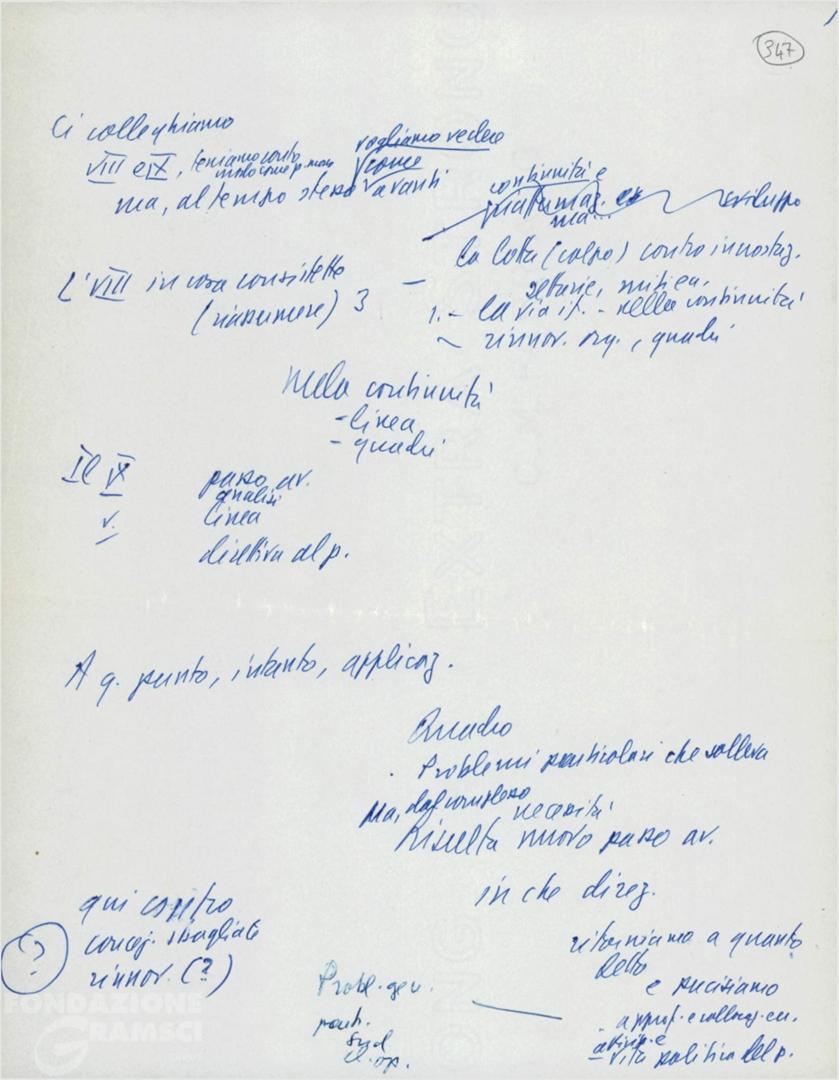 347
Ci colleghiamo
VIII e IX, teniamo conto
modo come p. non
vogliamo vedere
come
ma, al tempo stesso avanti
continuità e
ma...
sviluppo
La lotta (colpo) contro incrostaz.
settarie,
L'VIII in cosa consistette
(riassumere) 3
1. - La via it. - nella continuità
rinnov. org., quadri
Nella continuità
- linea
- quadri
Il IX
passo av.
analisi
v. linea
direttiva al p.
A q. punto, intanto, applicaz.
Quadro
Problemi particolari che solleva
Ma, dal complesso
necessità
Risulta nuovo passo av.
in che direz.
qui contro
concez. sbagliate
rinnov. (?)
?
ritorniamo a quanto
detto
e precisiamo
Probl. gen.
part.
Sud
cl. op.
vita politica del p.
FONDAZIONE
GRAMSCI